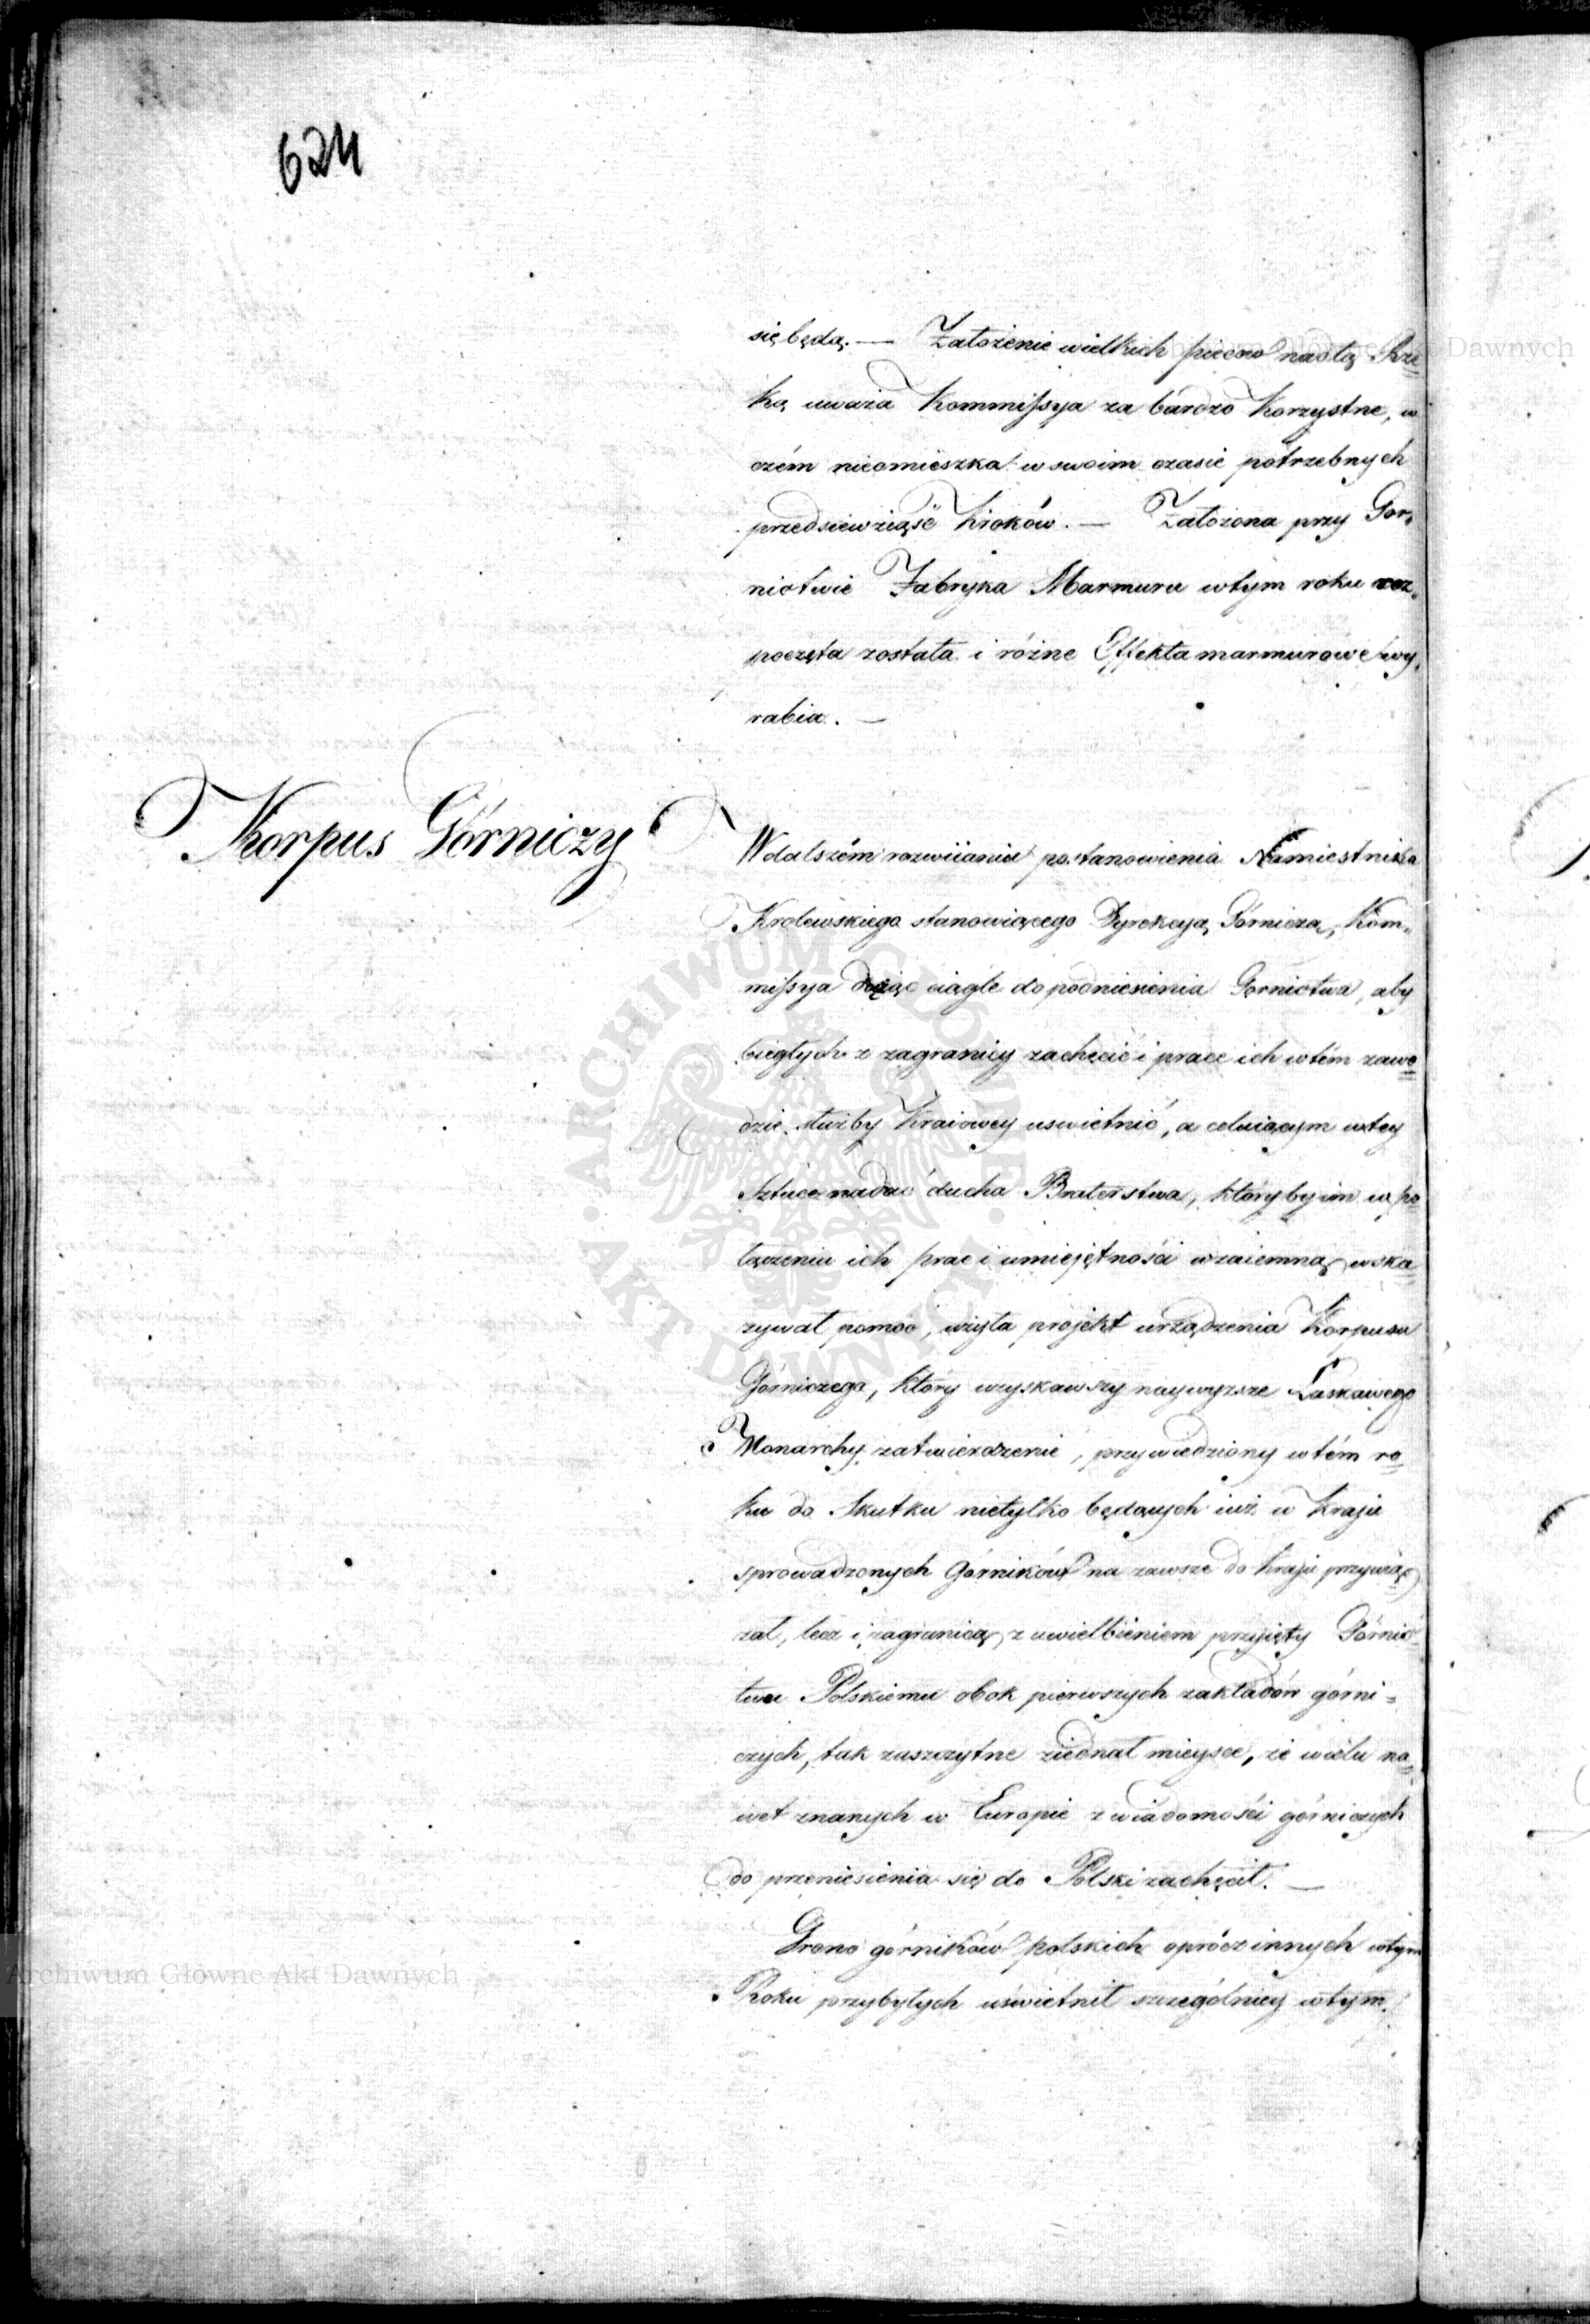 624
się będą. — Założenie wielkich pieców nad tą Rze=
ką uważa Kommissya za bardzo korzystne, w
czém nieomieszka w swoim czasie potrzebnych
przedsiewziąść kroków. — Założona przy Gor=
nictwie Fabryka Marmuru w tym roku roz=
poczęta została i różne Effekta marmurowe wy=
rabia. —
Korpus Górniczy
W dalszém rozwiiania postanowienia Namiestnika
Krolewskiego stanowiącego Dyrekcyą Górniczą, Kom=
missya dążąc ciągle do podniesienia Gornictwa, aby
biegłych z zagranicy zachęcić i prace ich w tém zawo=
dzie służby Kraiowey uswietnić, a celuiącym w tey
Sztuce nadać ducha Braterstwa, któryby im w po=
łączeniu ich prac i umiejętności wzaiemną wska=
zywał pomoc, wzięła projekt urządzenia Korpusu
Górniczego, który uzyskawszy naywyższe Łaskawego
Monarchy zatwierdzenie, przywiedziony w tém ro=
ku do Skutku nietylko będących iuż w kraju
sprowadzonych Górników na zawsze do kraju przywią=
zał, lecz i zagranicą z uwielbieniem przyięty Górnic=
twu Polskiemu obok pierwszych zakładów górni=
czych, tak zaszczytne ziednał mieysce, że wielu na=
wet znanych w Europie z wiadomości górniczych
do przeniesienia się do Polski zachęcił. —
Grono górników polskich oprócz innych w tym
Roku przybyłych uświetnił szczególniey w tym
Archiwum Główne Akt Dawnych
Archiwum Główne Akt Dawnych
ARCHIWUM GŁÓWNE AKT DAWNYCH